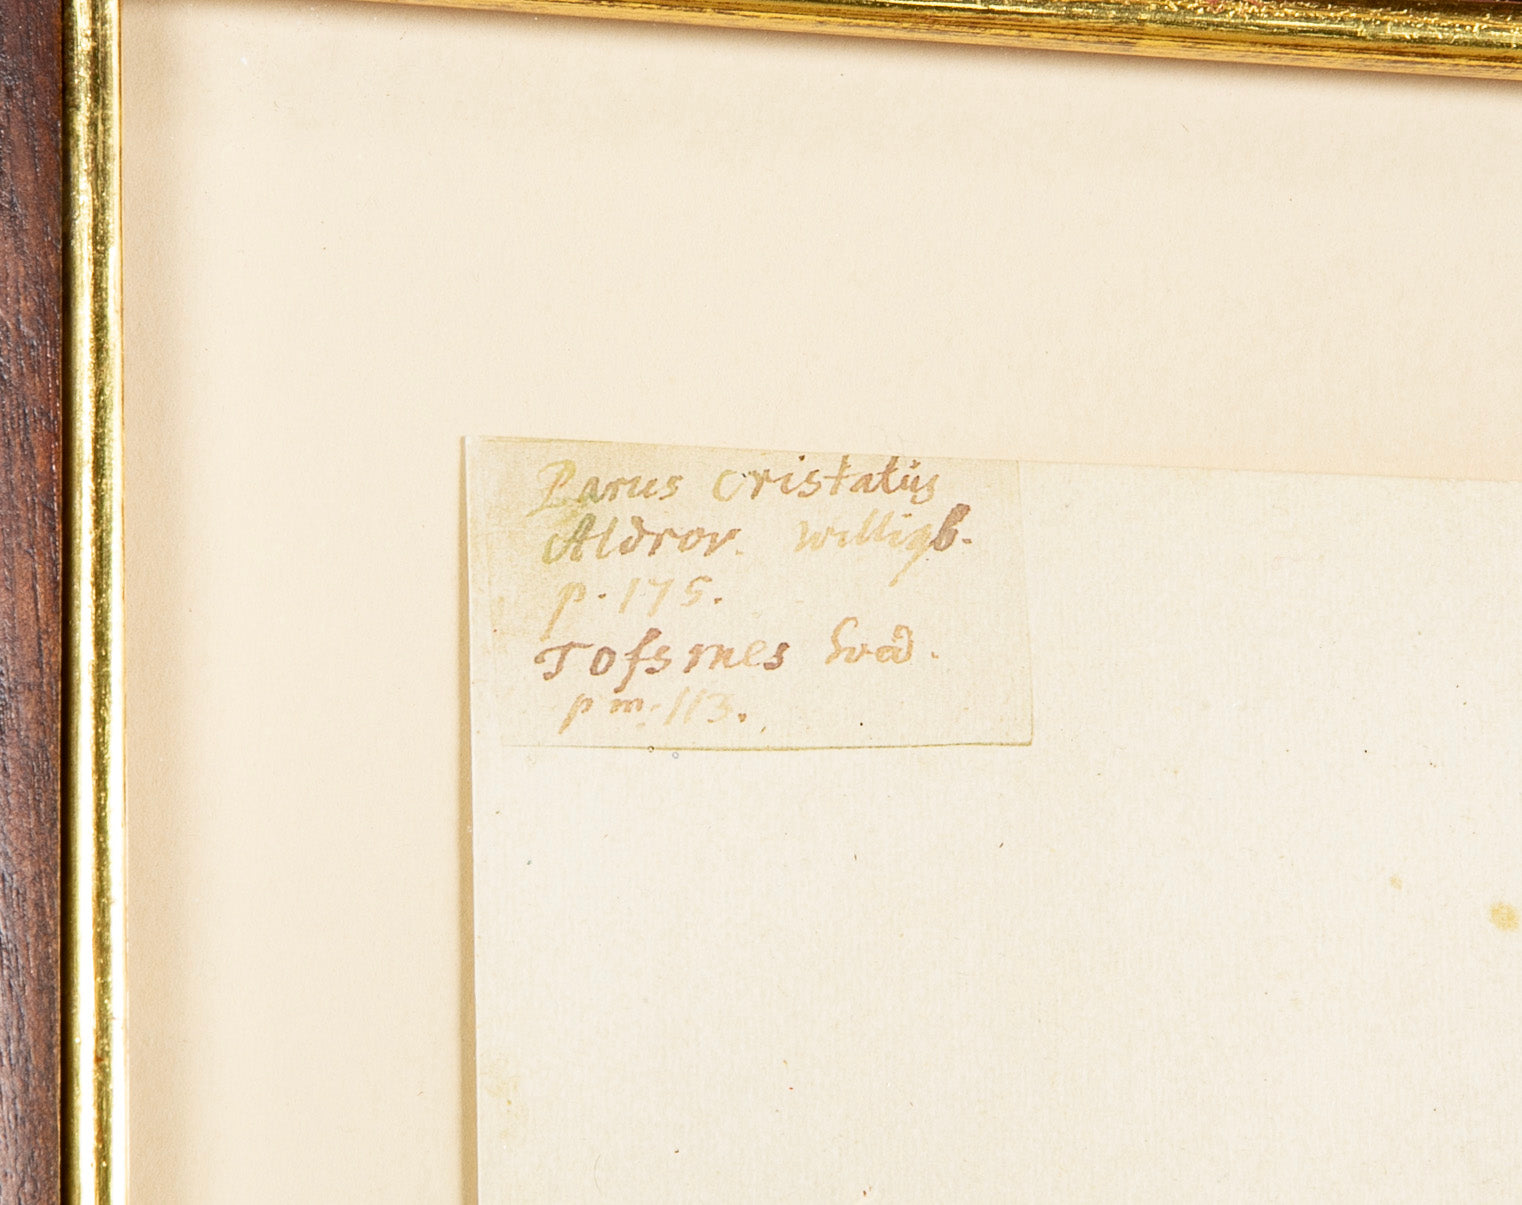 Parus cristatus
Aldrov. Willigb.
p. 175.
Tofsmes Svad.
p m. 113.